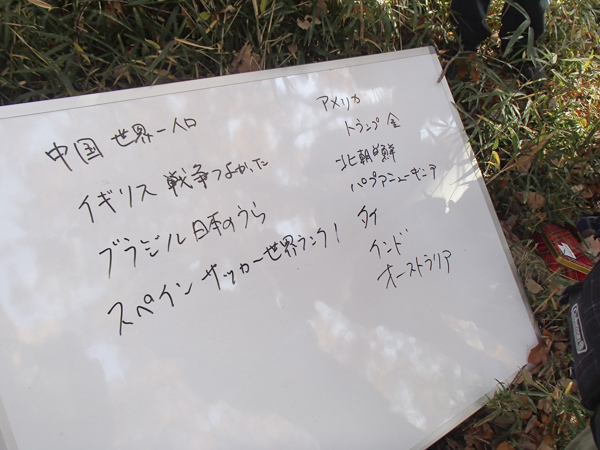 中国 世界一人口
イギリス 戦争つよかった
ブラジル 日本のうら
スペイン サッカー世界ランク1
アメリカ
トランプ 金
北朝鮮
パプアニューギニア
タイ
インド
オーストラリア